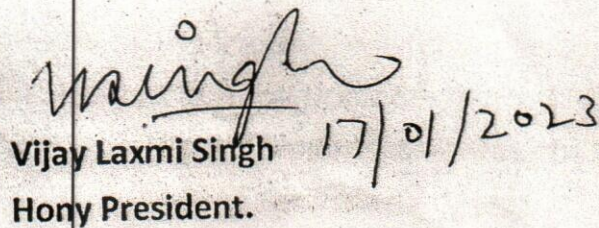 VLSingh
Vijay Laxmi Singh 17/01/2023
Hony President.